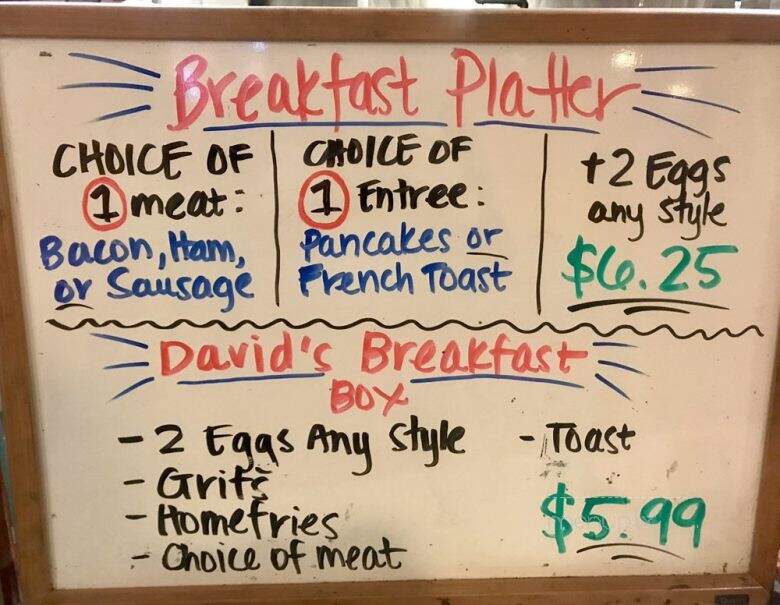 Breakfast Platter
CHOICE OF
1 meat:
Bacon, Ham,
or Sausage
CHOICE OF
1 Entree:
Pancakes or
French Toast
+2 Eggs
any style
$6.25
David's Breakfast
BOX
- 2 Eggs Any Style
- Grits
- Homefries
- Choice of meat
- Toast
$5.99